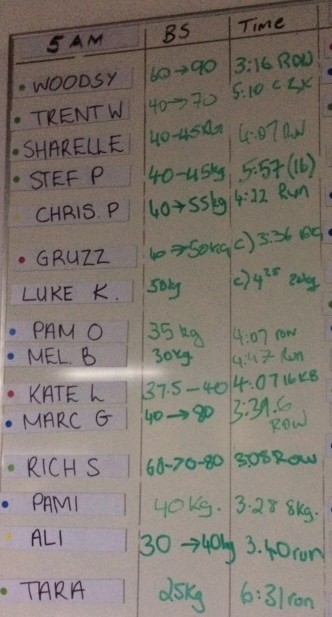 5 AM BS Time
WOODSY 60→90 3:16 ROW
TRENT W 40→70 5:10
SHARELLE 40-45kg 4:07 RW
STEF P 40-45kg 5:57 (16)
CHRIS. P 40→55kg 4:22 Run
GRUZZ 40→50kg c) 3:36
LUKE K. 50kg c) 4 25 20kg
PAM O 35kg 4:07 row
MEL. B 30kg 4:47 Run
KATE L 37.5-40 4:07 16KB
MARC G 40→80 3:39.6 ROW
RICH S 60-70-80 3:08 ROW
PAMI 40Kg. 3.28 8kg.
ALI 30→40kg 3.40 run
TARA 25Kg 6:31 run